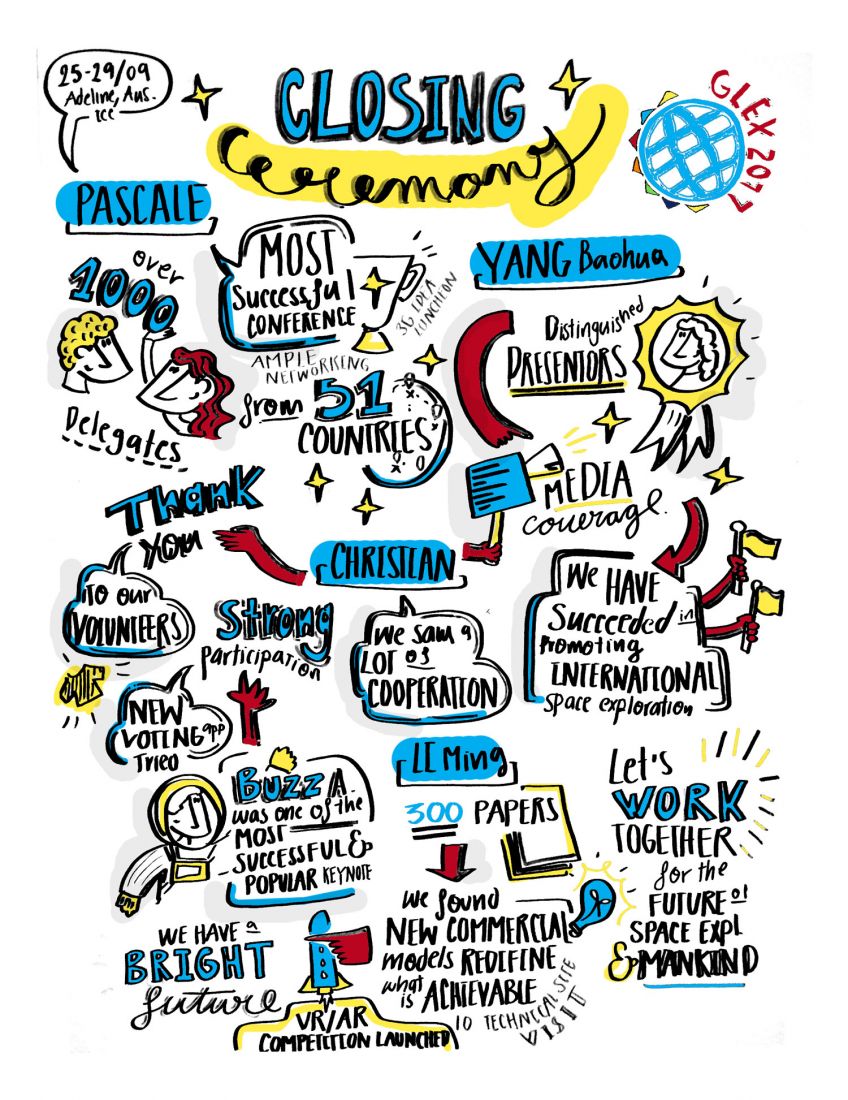 25-29/09
Adeline, Aus.
ICC
CLOSING
Ceremony
GLEX 2017
PASCALE
over
1000
Delegates
MOST
Successful
CONFERENCE
3G IDEA
LUNCHEON
AMPLE
NETWORKING
from 51
COUNTRIES
YANG Baohua
Distinguished
PRESENTORS
MEDIA
coverage.
Thank
You
TO our
VOLUNTEERS
CHRISTIAN
Strong
participation
We saw a
LOT of
COOPERATION
We HAVE
Succeeded in
Promoting
INTERNATIONAL
space exploration
NEW
VOTING app
Trieo
BUZZ A.
was one of the
MOST
SUCCESSFUL &
POPULAR KEYNOTE
LI Ming
300 PAPERS
we found
NEW COMMERCIAL
models REDEFINE
what is ACHIEVABLE
10 TECHNICAL SITE
VISIT
Let's
WORK
TOGETHER
for the
FUTURE of
SPACE EXPL
& MANKIND
WE HAVE a
BRIGHT
future
VR/AR
COMPETITION LAUNCHED